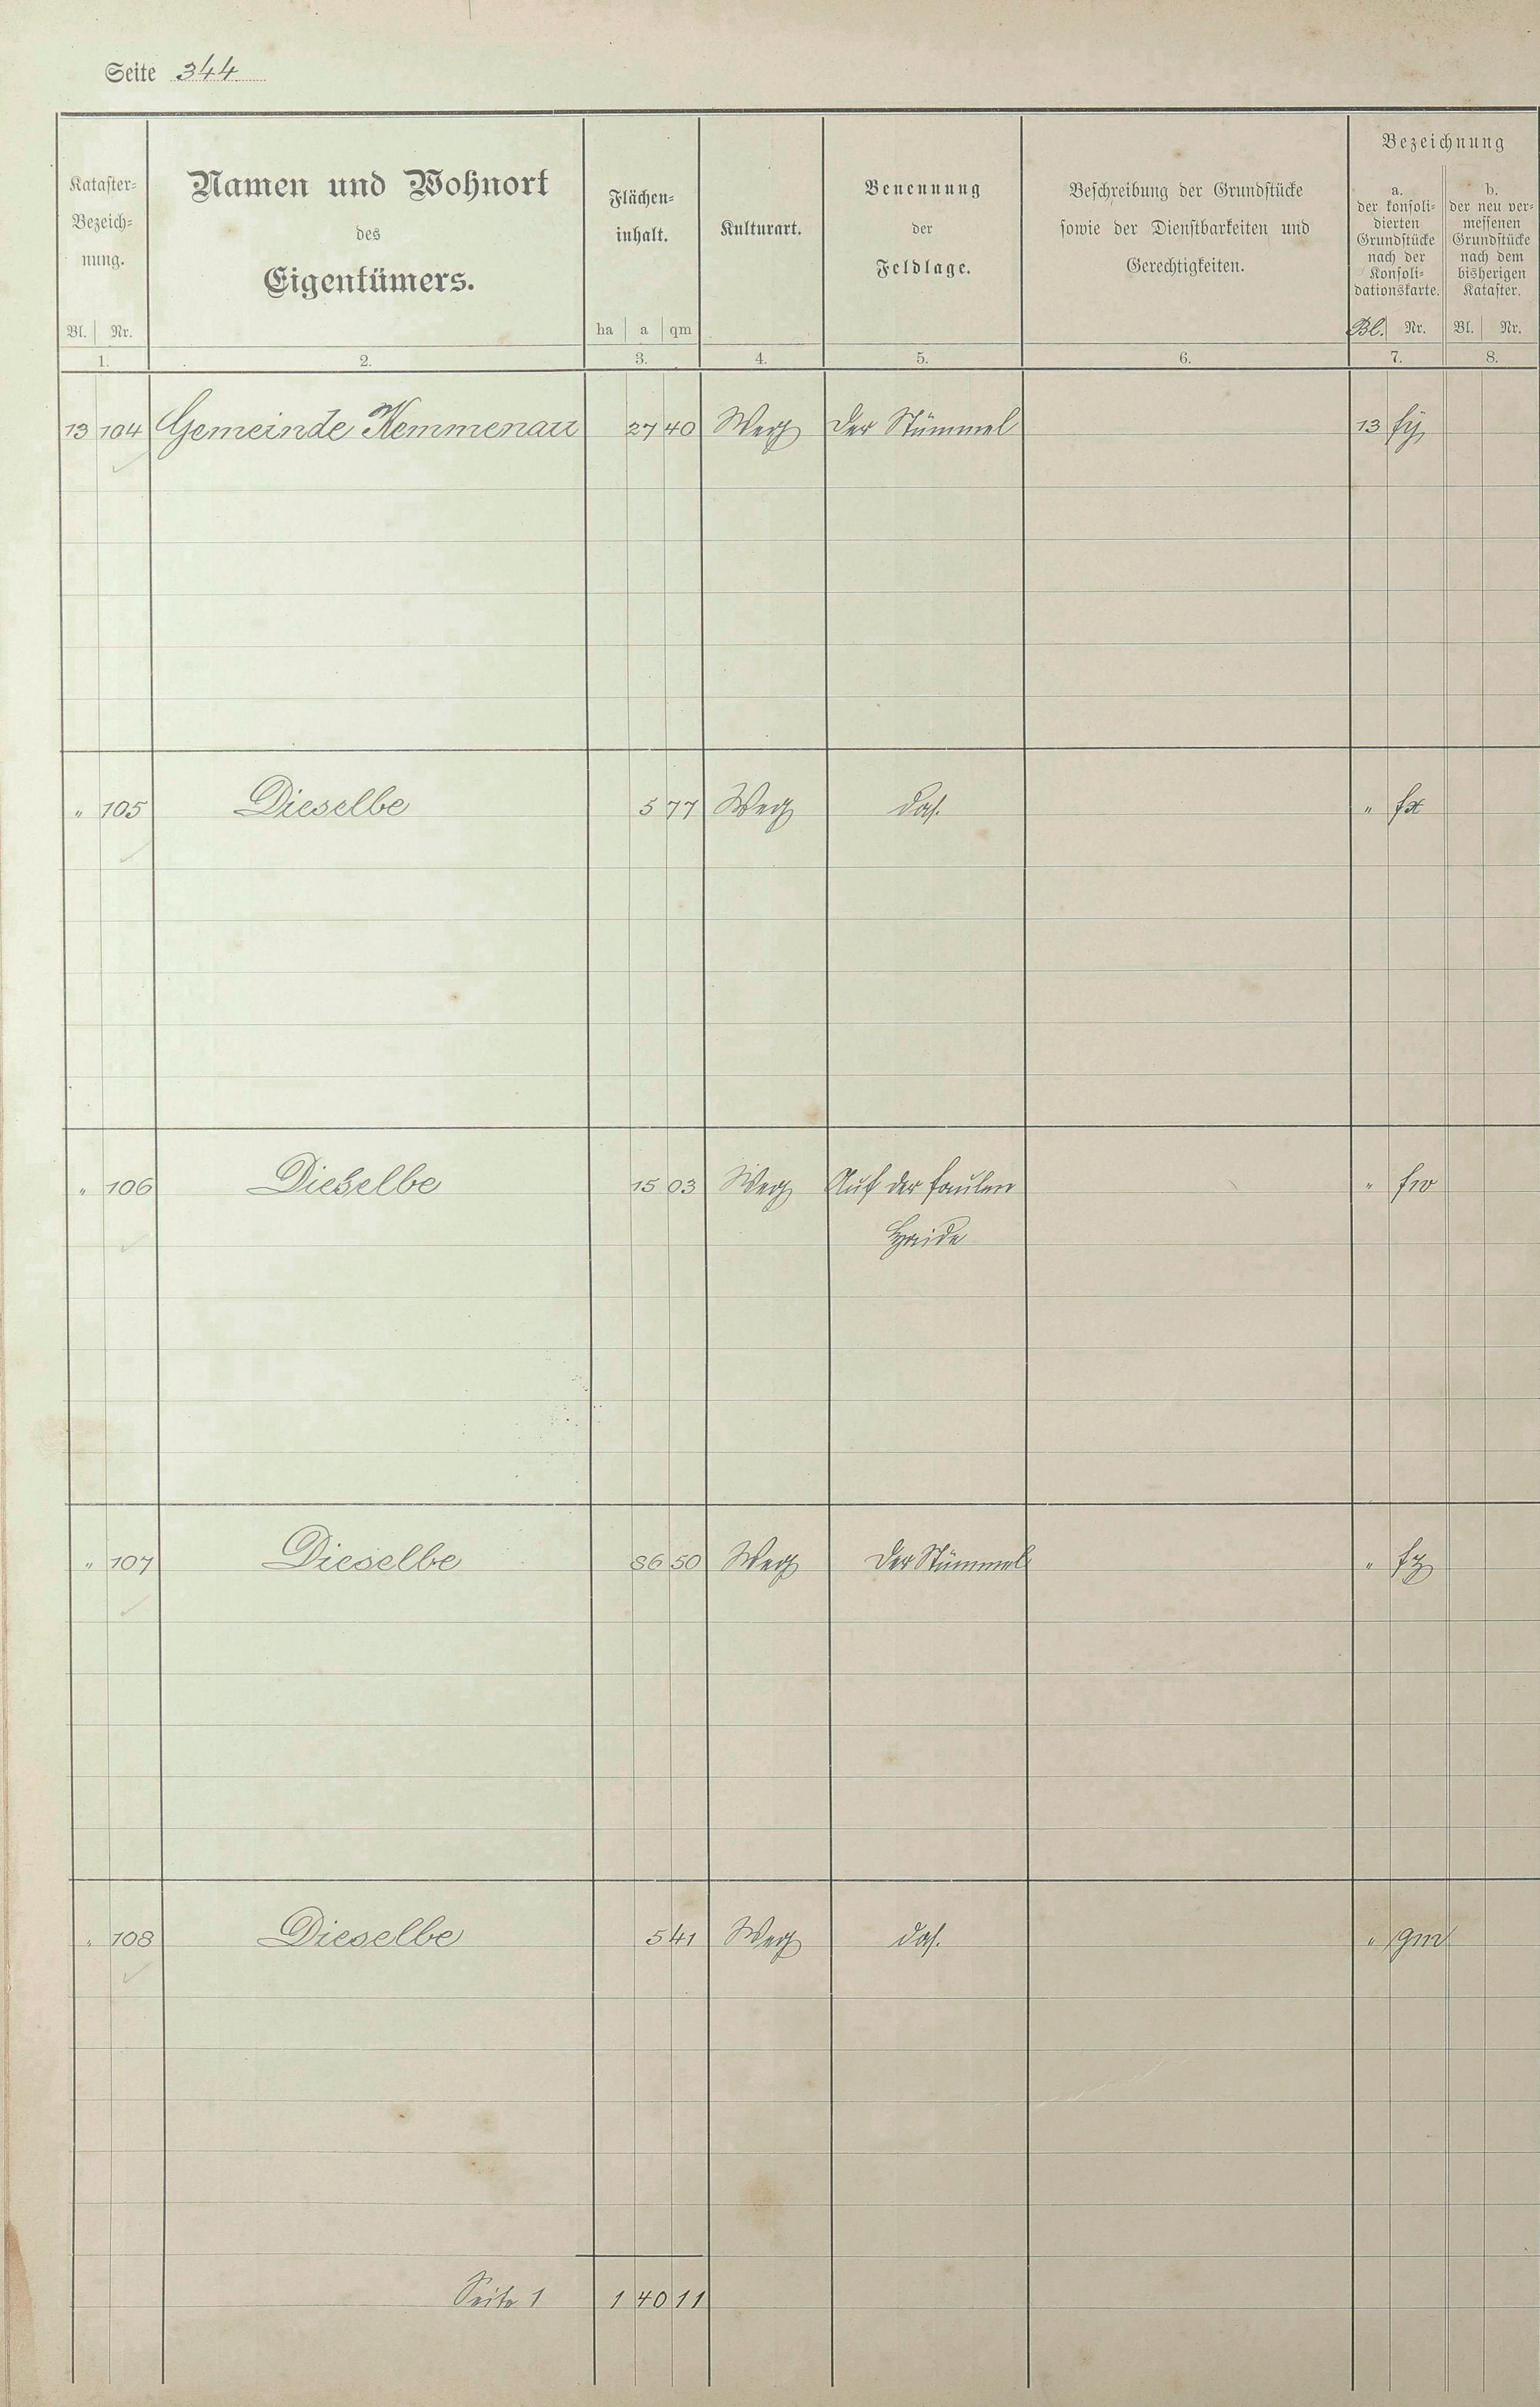 Seite 344
Kataster-
Bezeich-
nung.
Bl. Nr.
1.
Namen und Wohnort
des
Eigentümers.
2.
Flächen-
inhalt.
ha a qm
3.
Kulturart.
4.
Benennung
der
Feldlage.
5.
Beschreibung der Grundstücke
sowie der Dienstbarkeiten und
Gerechtigkeiten.
6.
Bezeichnung
a.
der konsoli-
dierten
Grundstücke
nach der
Konsoli-
dationskarte.
Bl. Nr.
7.
b.
der neu ver-
messenen
Grundstücke
nach dem
bisherigen
Kataster.
Bl. Nr.
8.
13 104 Gemeinde Kemmenau 27 40 Weg Der Stümmel 13 fy
" 105 Dieselbe 5 77 Weg das. " fx
" 106 Dieselbe 15 03 Weg Auf der faulen " fw
Haide
" 107 Dieselbe 86 50 Weg Der Stümmel " fz
" 108 Dieselbe 5 41 Weg das. " gm
Seite 1 1 40 11